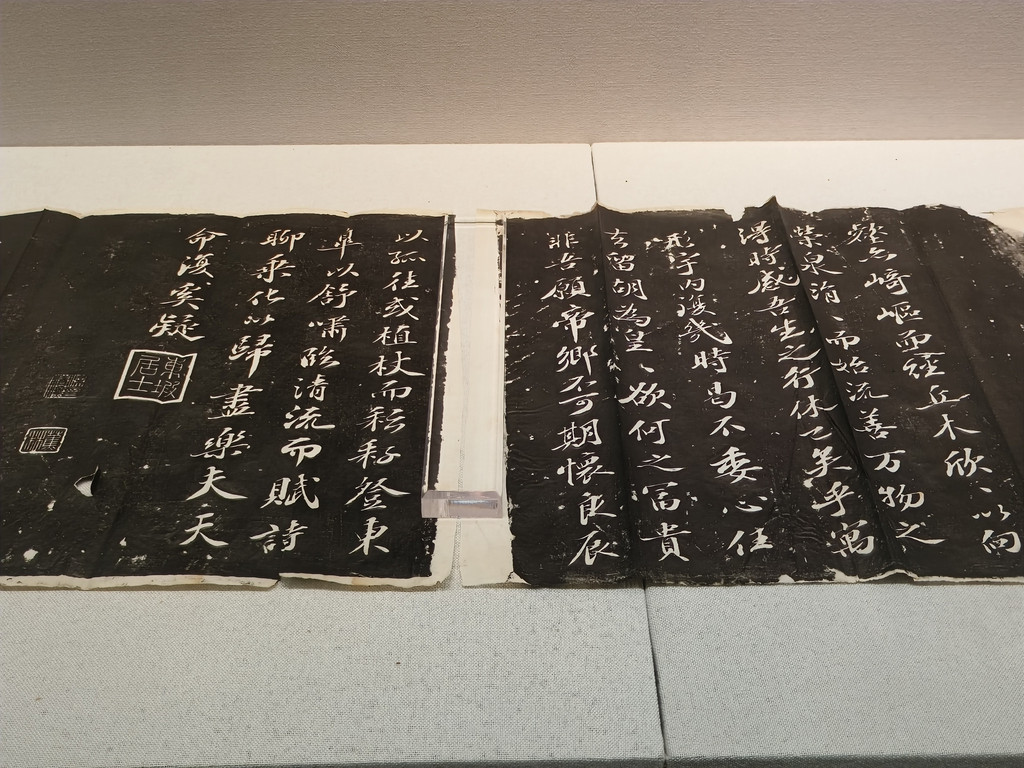 壑亦崎嶇而經丘木欣〻以向
榮泉涓〻而始流善万物之
得時感吾生之行休已矣乎寓
形宇内復幾時曷不委心任
去留胡為皇〻欲何之冨貴
非吾願帝鄉不可期懷良辰
以孤往或植杖而耘耔登東
皐以舒嘯臨清流而賦詩
聊乘化以歸盡樂夫天
命復奚疑
東坡居士